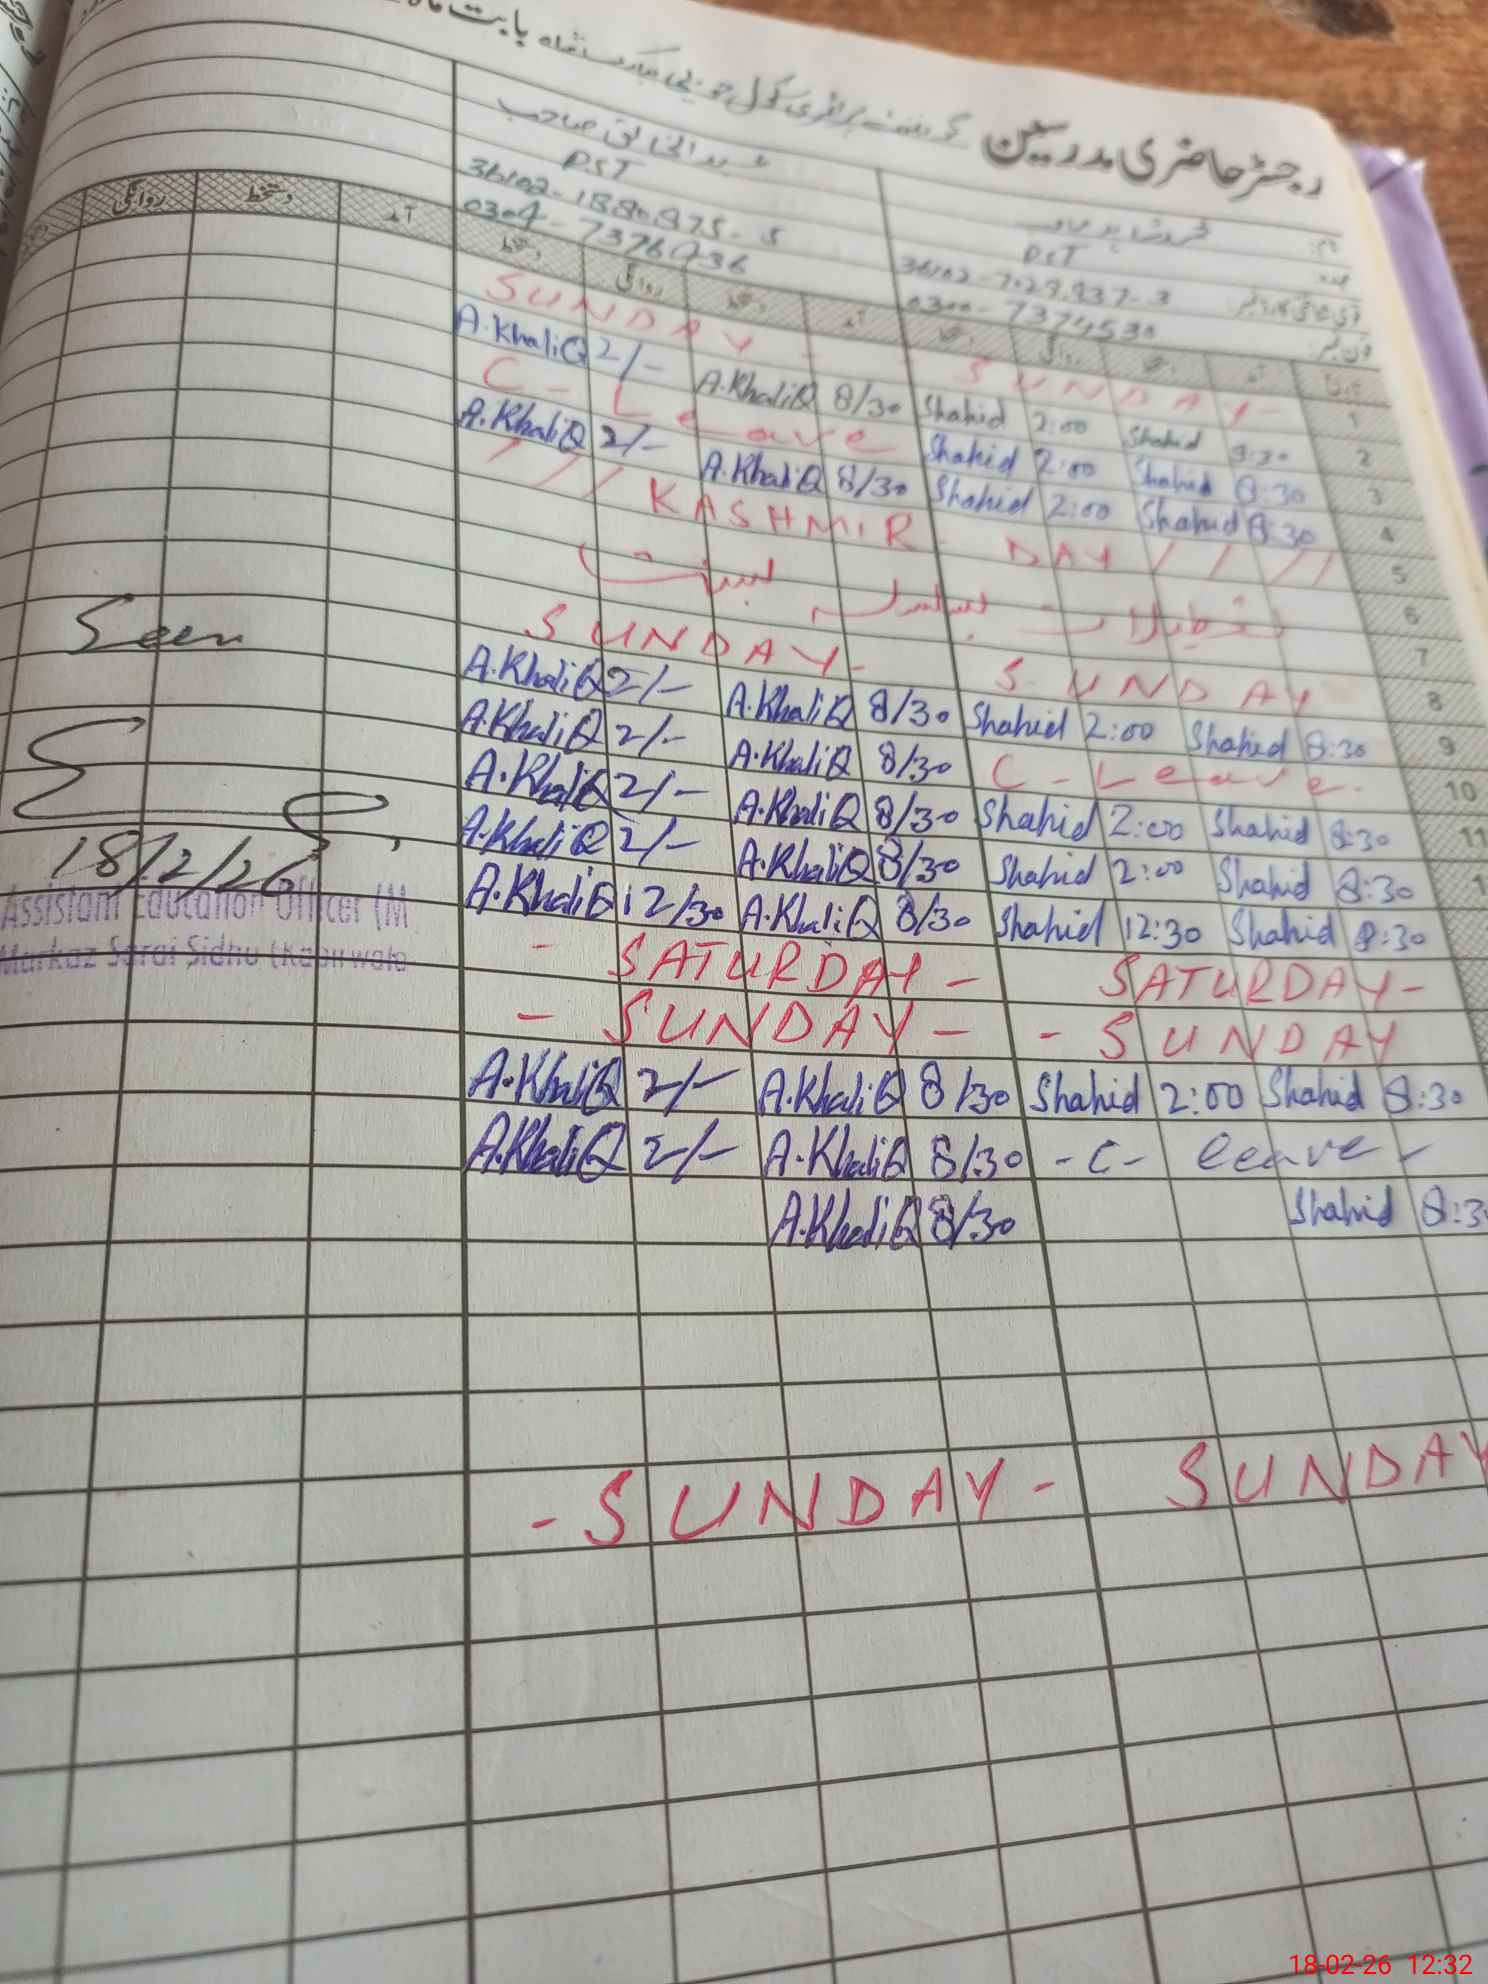 رجسٹر حاضری مدرسین گورنمنٹ پرائمری سکول
بابت ماہ
عبدالخالق صاحب
PST PST
36102-1880875-5
0304-7376036
0300-7374530
روانگی دستخط آمد دستخط روانگی
SUNDAY - SUNDAY - 1
A.KhaliQ 2/- A.KhaliQ 8/30 Shahid 2:00 Shahid 8:30 2
C - Leave Shahid 2:00 Shahid 8:30 3
A.KhaliQ 2/- A.KhaliQ 8/30 Shahid 2:00 Shahid 8:30 4
/ / / KASHMIR - DAY / / / / 5
تعطیلات بسلسلہ بسنت 6
7
SUNDAY - SUNDAY 8
A.KhaliQ 2/- A.KhaliQ 8/30 Shahid 2:00 Shahid 8:30 9
A.KhaliQ 2/- A.KhaliQ 8/30 C - Leave. 10
A.KhaliQ 2/- A.KhaliQ 8/30 Shahid 2:00 Shahid 8:30 11
A.KhaliQ 2/- A.KhaliQ 8/30 Shahid 2:00 Shahid 8:30 1
A.KhaliQ 12/30 A.KhaliQ 8/30 Shahid 12:30 Shahid 8:30
- SATURDAY - SATURDAY -
- SUNDAY - - SUNDAY
A.KhaliQ 2/- A.KhaliQ 8/30 Shahid 2:00 Shahid 8:30
A.KhaliQ 2/- A.KhaliQ 8/30 - C - leave -
A.KhaliQ 8/30 Shahid 8:3
- SUNDAY - SUNDAY
Seen
18/2/26
Assistant Education Officer (M
Markaz Sarai Sidhu (Kabirwala
18-02-26 12:32